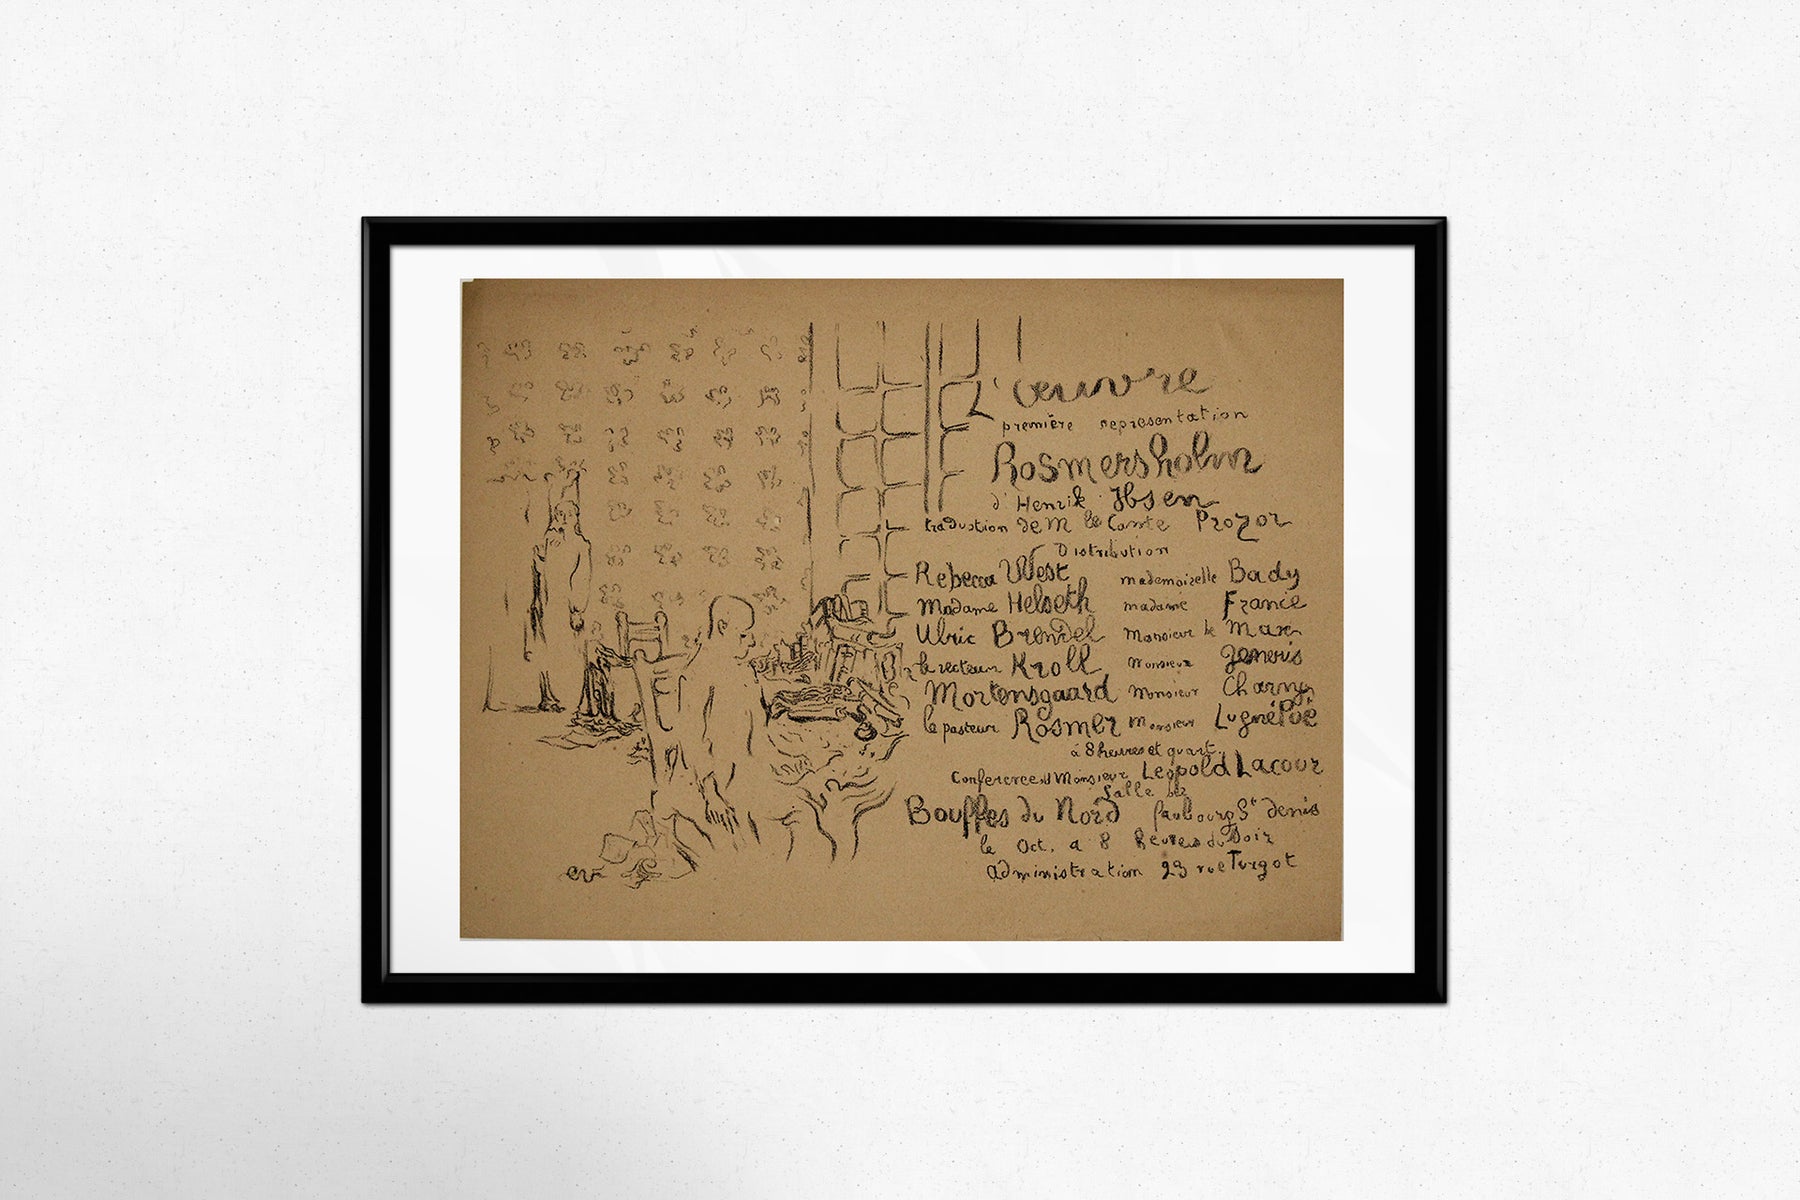 L'œuvre
première representation
Rosmersholm
d'Henrik Ibsen
traduction de M le Comte Prozor
Distribution
Rebecca West mademoiselle Bady
Madame Helseth madame France
Ulric Brendel Monsieur le Max
le recteur Kroll Monsieur Gemeris
Mortensgaard Monsieur Charny
le pasteur Rosmer Monsieur LugnéPoë
à 8 heures et quart.
Conference d Monsieur Leopold Lacour
Salle des
Bouffes du Nord faubourg St denis
le Oct. a 8 heures du Soir
administration 23 rue Turgot
ev